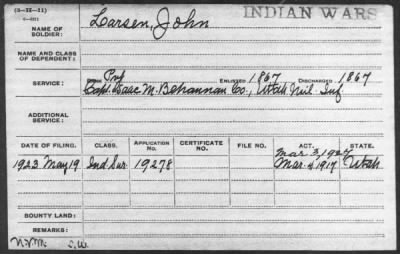 (3-II-11)
INDIAN WARS
NAME OF SOLDIER: Larsen, John
NAME AND CLASS OF DEPENDENT:
SERVICE: Pvt ENLISTED 1867 DISCHARGED 1867
Capt. Isaac M. Behannan Co., Utah Mil. Inf
ADDITIONAL SERVICE:
DATE OF FILING. CLASS. APPLICATION No. CERTIFICATE No. FILE NO. ACT. STATE.
Mar 3, 1927
1923 May 19 Ind Sur. 19278 Mar. 4, 1917 Utah
BOUNTY LAND:
REMARKS: